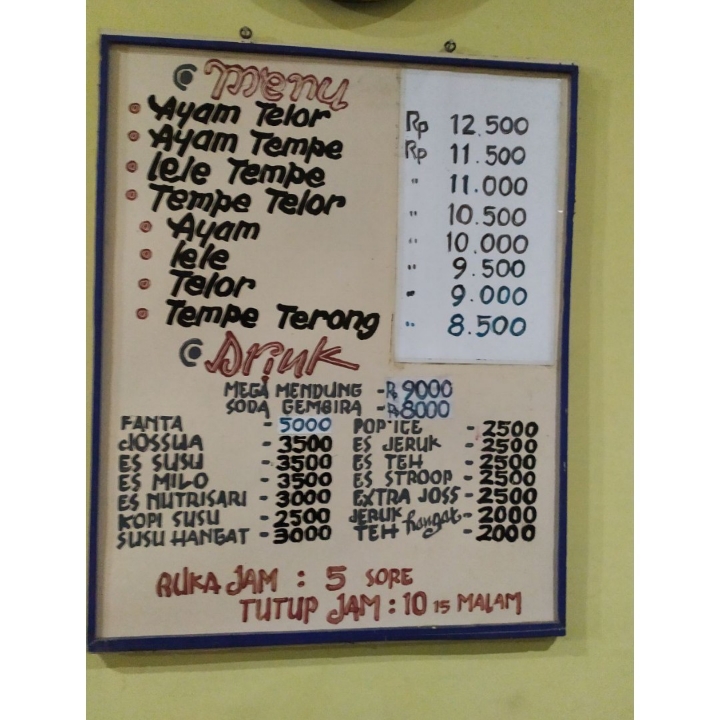 Menu
Ayam Telor Rp 12.500
Ayam Tempe Rp 11.500
lele Tempe " 11.000
Tempe Telor " 10.500
Ayam " 10.000
lele " 9.500
Telor " 9.000
Tempe Terong " 8.500
Drink
MEGA MENDUNG - Rp 9000
SODA GEMBIRA - Rp 8000
FANTA - 5000 POP ICE - 2500
JOSSUA - 3500 ES JERUK - 2500
ES SUSU - 3500 ES TEH - 2500
ES MILO - 3500 ES STROOP - 2500
ES NUTRISARI - 3000 EXTRA JOSS - 2500
KOPI SUSU - 2500 JERUK hangat - 2000
SUSU HANGAT - 3000 TEH - 2000
BUKA JAM : 5 SORE
TUTUP JAM : 10 15 MALAM